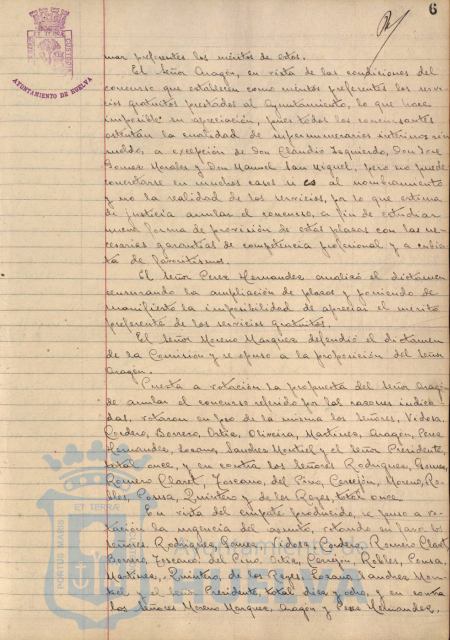 6
AYUNTAMIENTO DE HUELVA
mar preferentes los méritos de estos.
El Señor Aragón, en vista de las condiciones del
concurso que establecen como méritos preferentes los servi
cios gratuitos prestados al Ayuntamiento, lo que hace
imposible su apreciación, pues todos los concursantes
ostentan la cualidad de supernumerarios interinos sin
sueldo, a excepción de Don Claudio Izquierdo, Don José
Gomez Morales y Don Manuel San Miguel, pero no puede
concretarse en muchos casos si es al nombramiento
y no la realidad de los servicios, por lo que estima
de justicia anular el concurso, a fin de estudiar
nueva forma de provisión de estas plazas con las ne-
cesarias garantías de competencia profesional y a cubier
ta de favoritismos.
El Señor Perez Hernandez analizó el dictamen
censurando la ampliación de plazos y poniendo de
manifiesto la imposibilidad de apreciar el mérito
preferente de los servicios gratuitos.
El Señor Moreno Marquez defendió el dictamen
de la Comisión y se opuso a la proposición del Señor
Aragón.
Puesta a votación la propuesta del Señor Aragón
de anular el concurso referido por las razones indica
das, votaron en pro de la misma los Señores, Vidosa,
Cordero, Borrero, Ortiz, Oliveira, Martinez, Aragón, Perez
Hernandez, Lozano, Sanchez Montiel y el Señor Presidente,
total once, y en contra los Señores Rodriguez, Gomez,
Romero Claret, Toscano, del Pino, Cerejón, Moreno, Ro-
bles, Ponsa, Quintero y de los Reyes, total once.
En vista del empate producido, se puso a vo-
tación la urgencia del asunto, votando en favor los
Señores, Rodriguez, Gomez, Vidosa, Cordero, Romero Claret,
Borrero, Toscano, del Pino, Ortiz, Cerejón, Robles, Ponsa,
Martinez, Quintero, de los Reyes, Lozano, Sanchez Mon-
tiel y el Señor Presidente, total diez y ocho, y en contra
los Señores Moreno Marquez, Aragón y Perez Hernandez,
PORTUS MARIS ET TERRAE
Ayuntamiento de
HUELVA